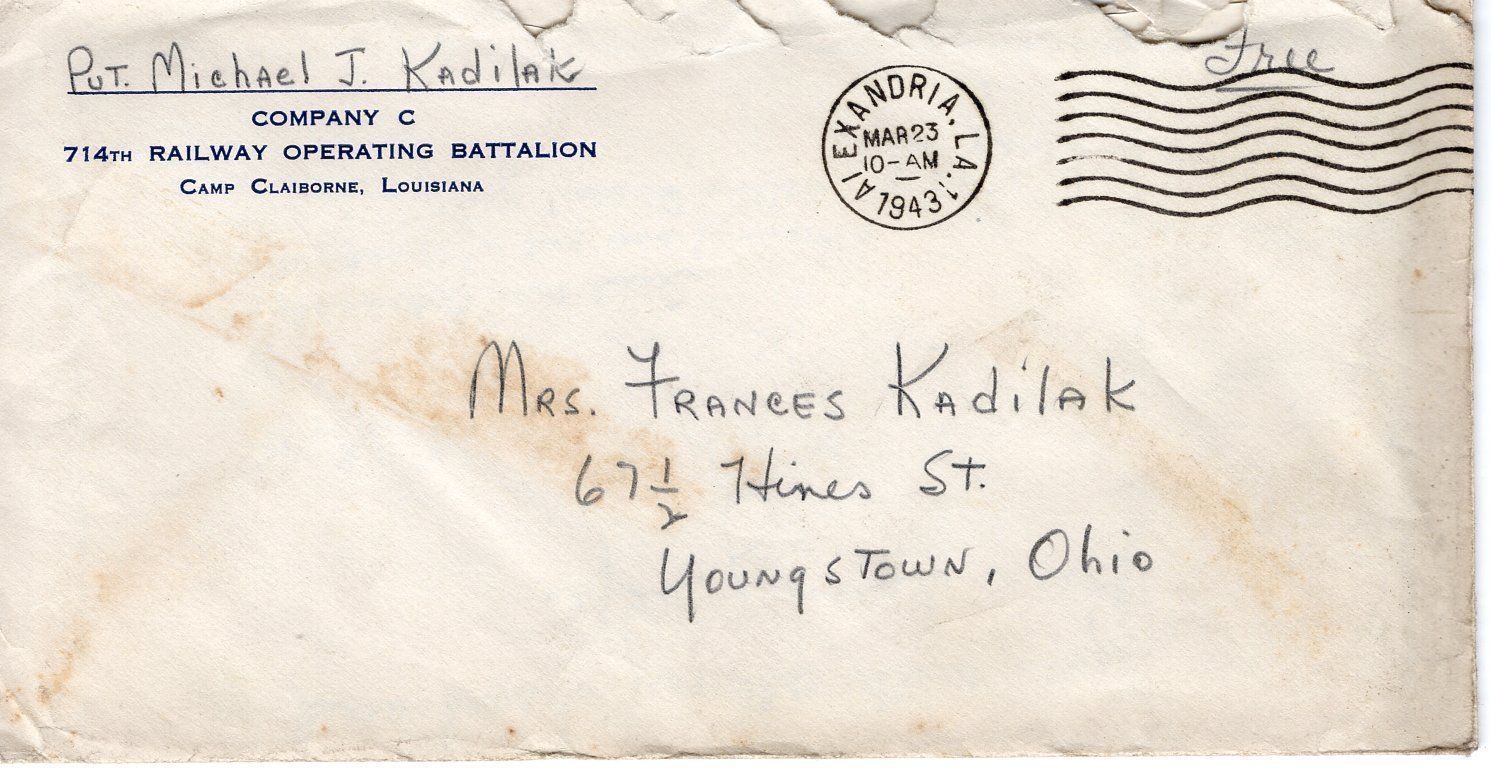 Pvt. Michael J. Kadilak
COMPANY C
714TH RAILWAY OPERATING BATTALION
CAMP CLAIBORNE, LOUISIANA
ALEXANDRIA, LA. 1
MAR 23
10-AM
1943
Free
MRS. FRANCES KADILAK
67 1/2 Hines St.
YOUNGSTOWN, Ohio